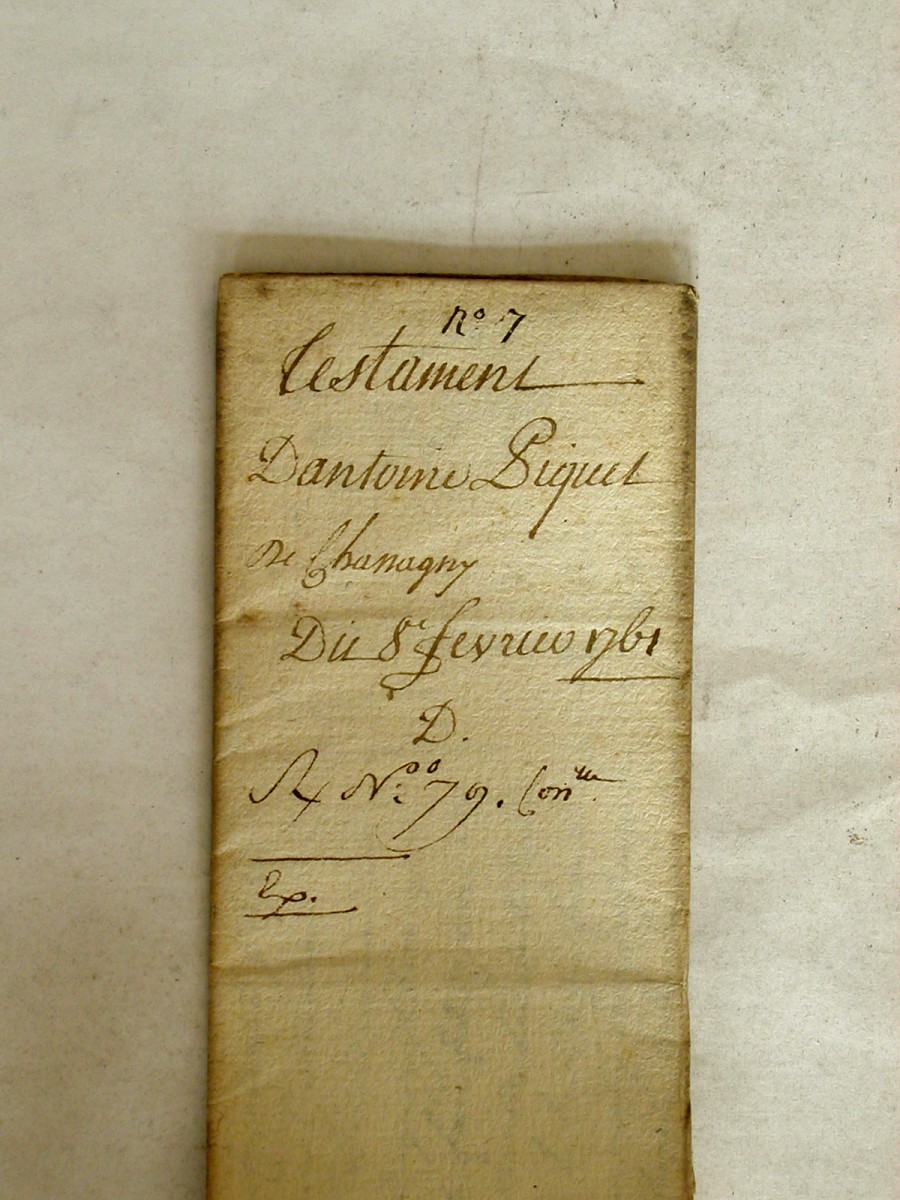 No 7
Testament
Dantoine Piquet
De Chanagny
Du 8e fevrier 1761
D.
No 79. Con
Exp.